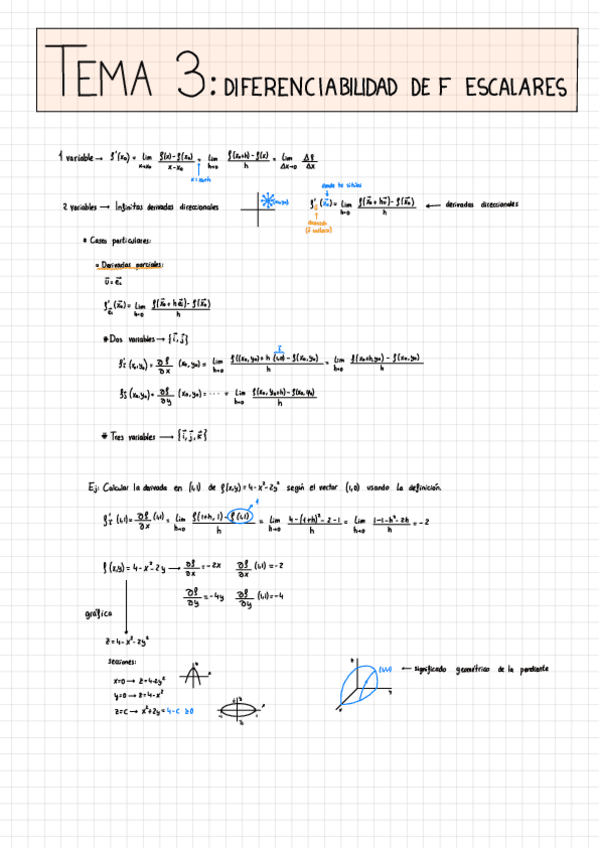 TEMA 3: DIFERENCIABILIDAD DE F ESCALARES
1 variable → f'(x₀) = lim x→x₀ (f(x)-f(x₀))/(x-x₀) = lim h→0 (f(x₀+h)-f(x))/h = lim Δx→0 Δf/Δx
donde te sitúas
2 variables → Infinitas derivadas direccionales (x₀,y₀) f'ᵤ⃗ (x⃗₀) = lim h→0 (f(x⃗₀+hu⃗)-f(x⃗₀))/h ← derivadas direccionales
dirección
• Casos particulares:
• Derivadas parciales:
u⃗ = e⃗ᵢ
f'e⃗ᵢ (x⃗₀) = lim h→0 (f(x⃗₀+h e⃗ᵢ)-f(x⃗₀))/h
* Dos variables → {i⃗, j⃗}
f'i⃗ (x₀,y₀) = ∂f/∂x (x₀,y₀) = lim h→0 (f((x₀,y₀)+h(1,0))-f(x₀,y₀))/h = lim h→0 (f(x₀+h,y₀)-f(x₀,y₀))/h
f'j⃗ (x₀,y₀) = ∂f/∂y (x₀,y₀) = ... = lim h→0 (f(x₀,y₀+h)-f(x₀,y₀))/h
* Tres variables → {i⃗, j⃗, k⃗}
Ej: Calcular la derivada en (1,1) de f(x,y)=4-x²-2y² según el vector (1,0) usando la definición.
f'i⃗ (1,1) = ∂f/∂x (1,1) = lim h→0 (f(1+h,1)-f(1,1))/h = lim h→0 (4-(1+h)²-2-1)/h = lim h→0 (1-1-h²-2h)/h = -2
f(x,y)=4-x²-2y → ∂f/∂x = -2x ∂f/∂x (1,1) = -2
∂f/∂y = -4y ∂f/∂y (1,1) = -4
gráfica
z=4-x²-2y²
secciones:
x=0 → z=4-2y²
y=0 → z=4-x²
z=c → x²+2y=4-c ≥0
(1,1,1) ← significado geométrico de la pendiente